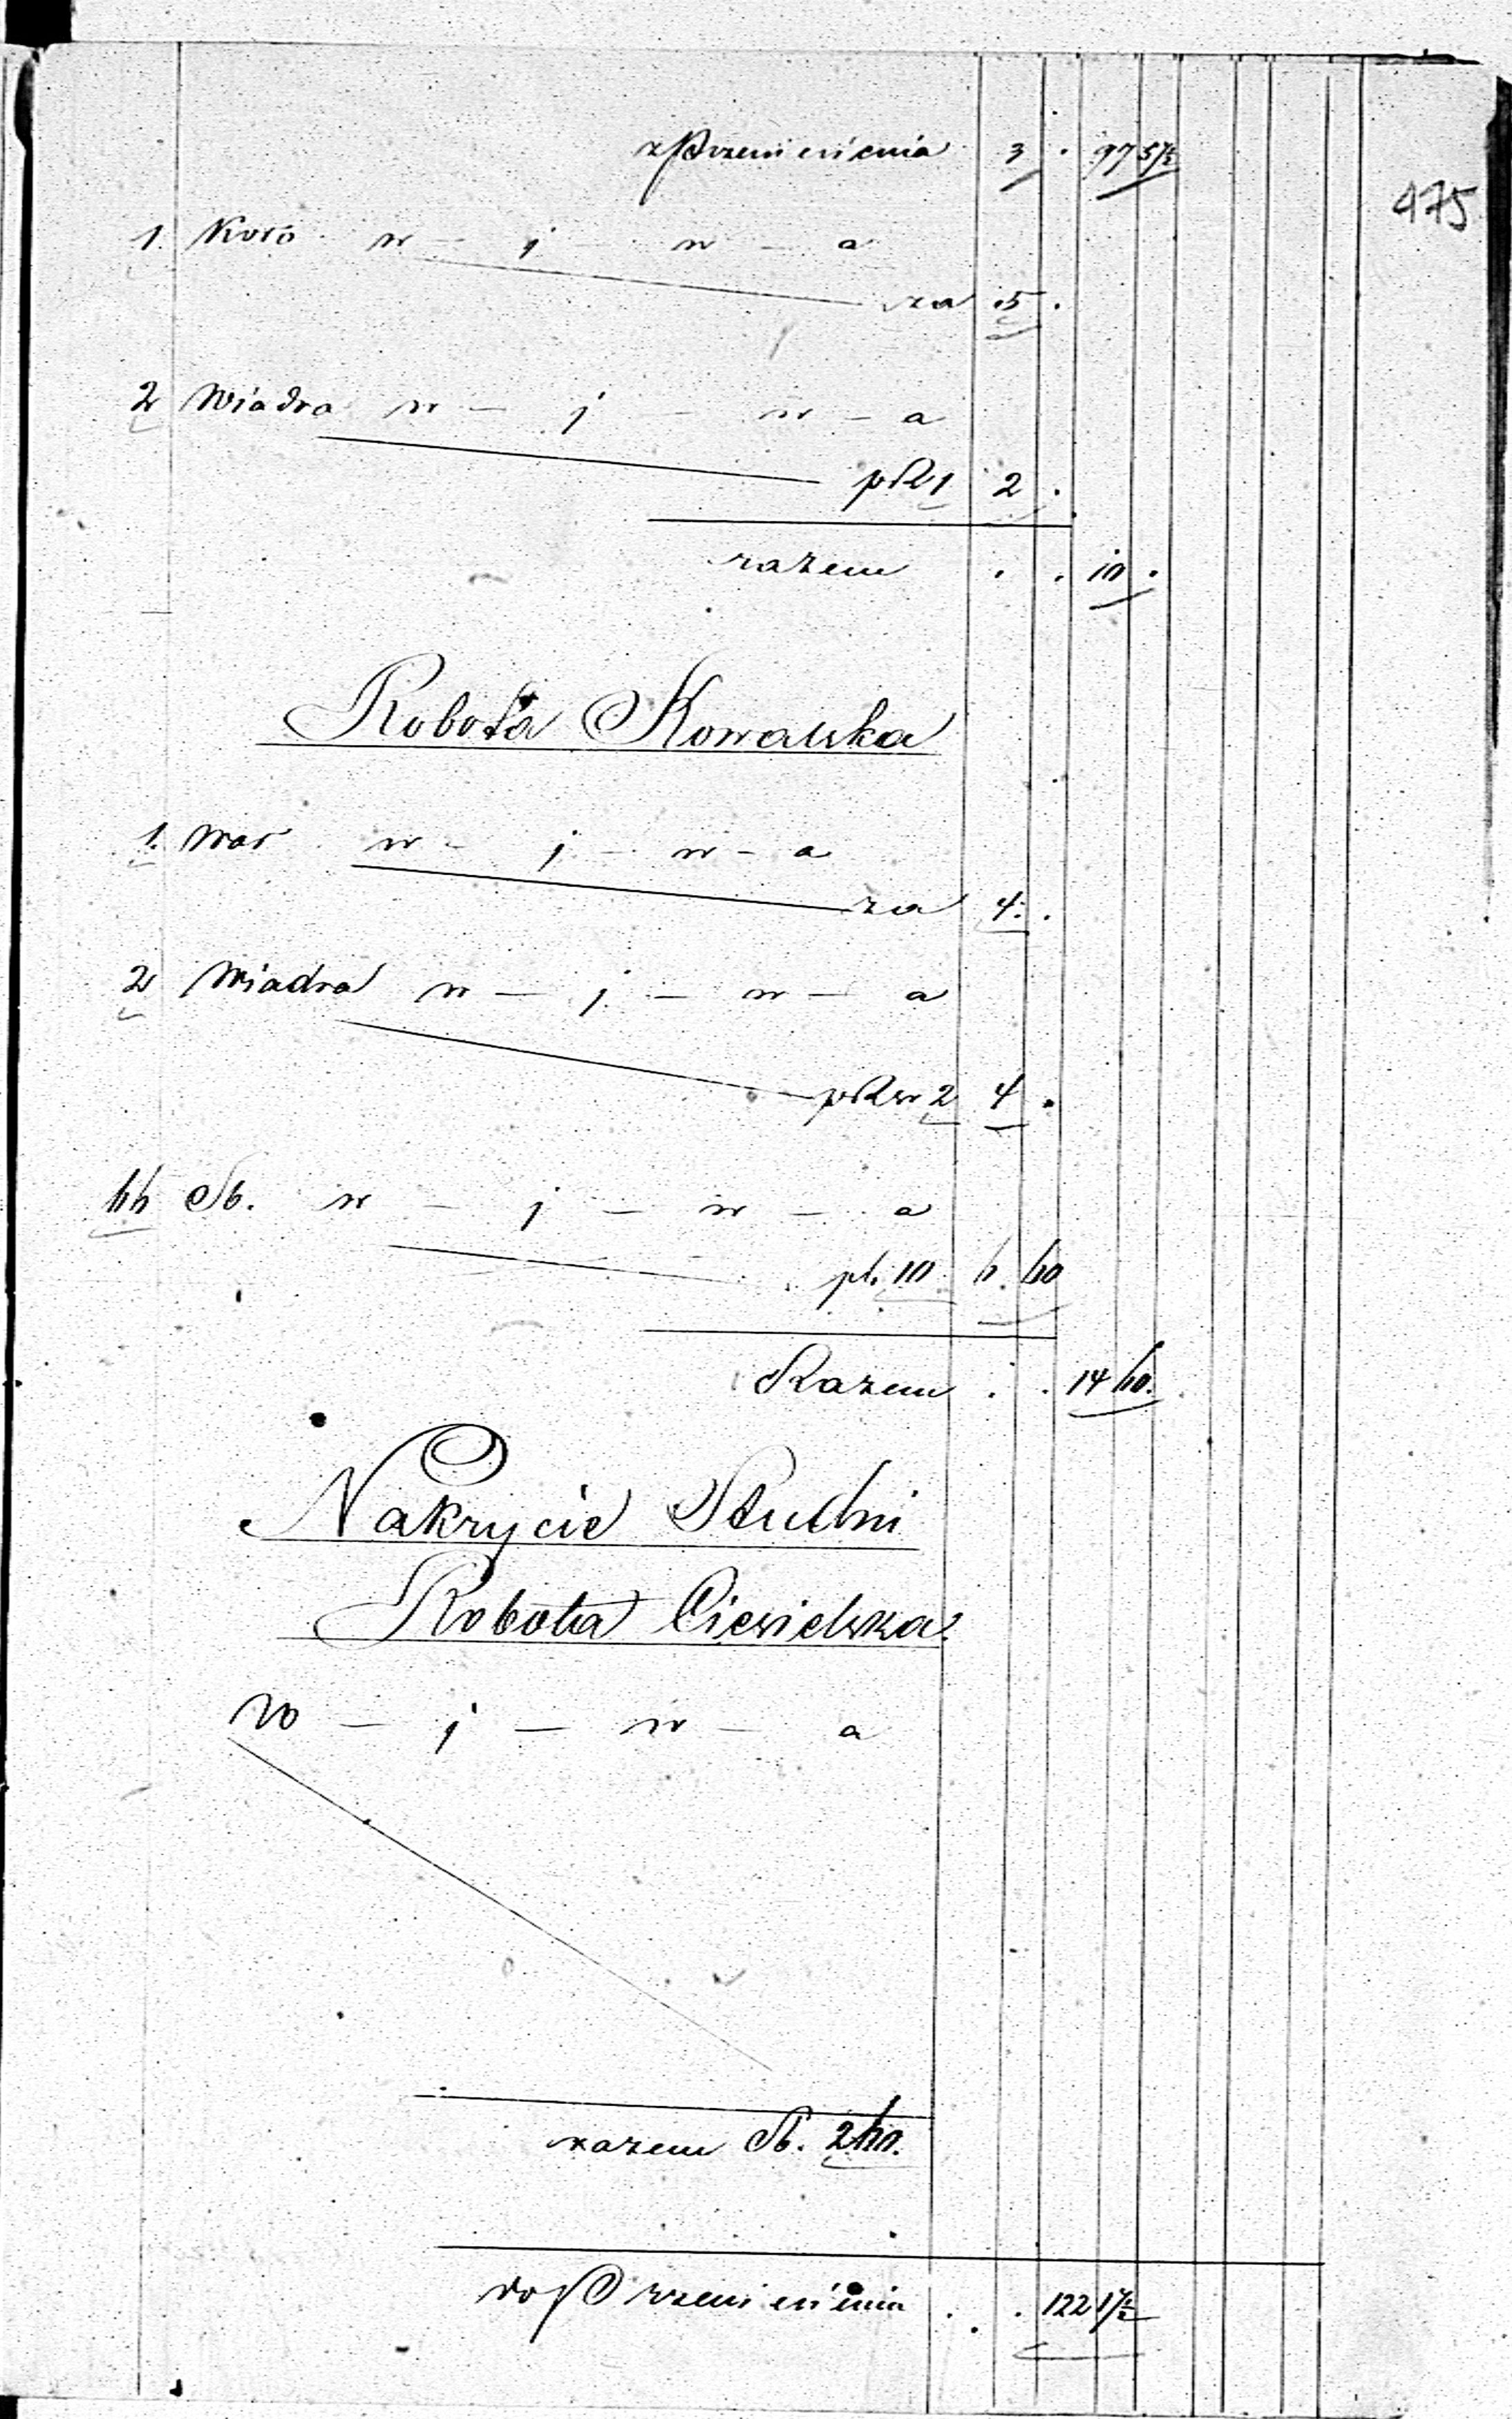 z Przeniesienia 3 . 97 57½
475
1. Koło w – j – w – a
za 5 .
2 Wiadra w – j – w – a
p R 1 2 .
razem . . 10 .
Robota Kowalska
1. Wał w – j – w – a
za 4 .
2 Wiadra w – j – w – a
p Rsr 2 4 .
66 w – j – w – a
10 6 60
Razem . . 14 60.
Nakrycie Studni
Robota Ciesielska.
W – j – w – a
razem 260.
do Przeniesienia . . 122 17½